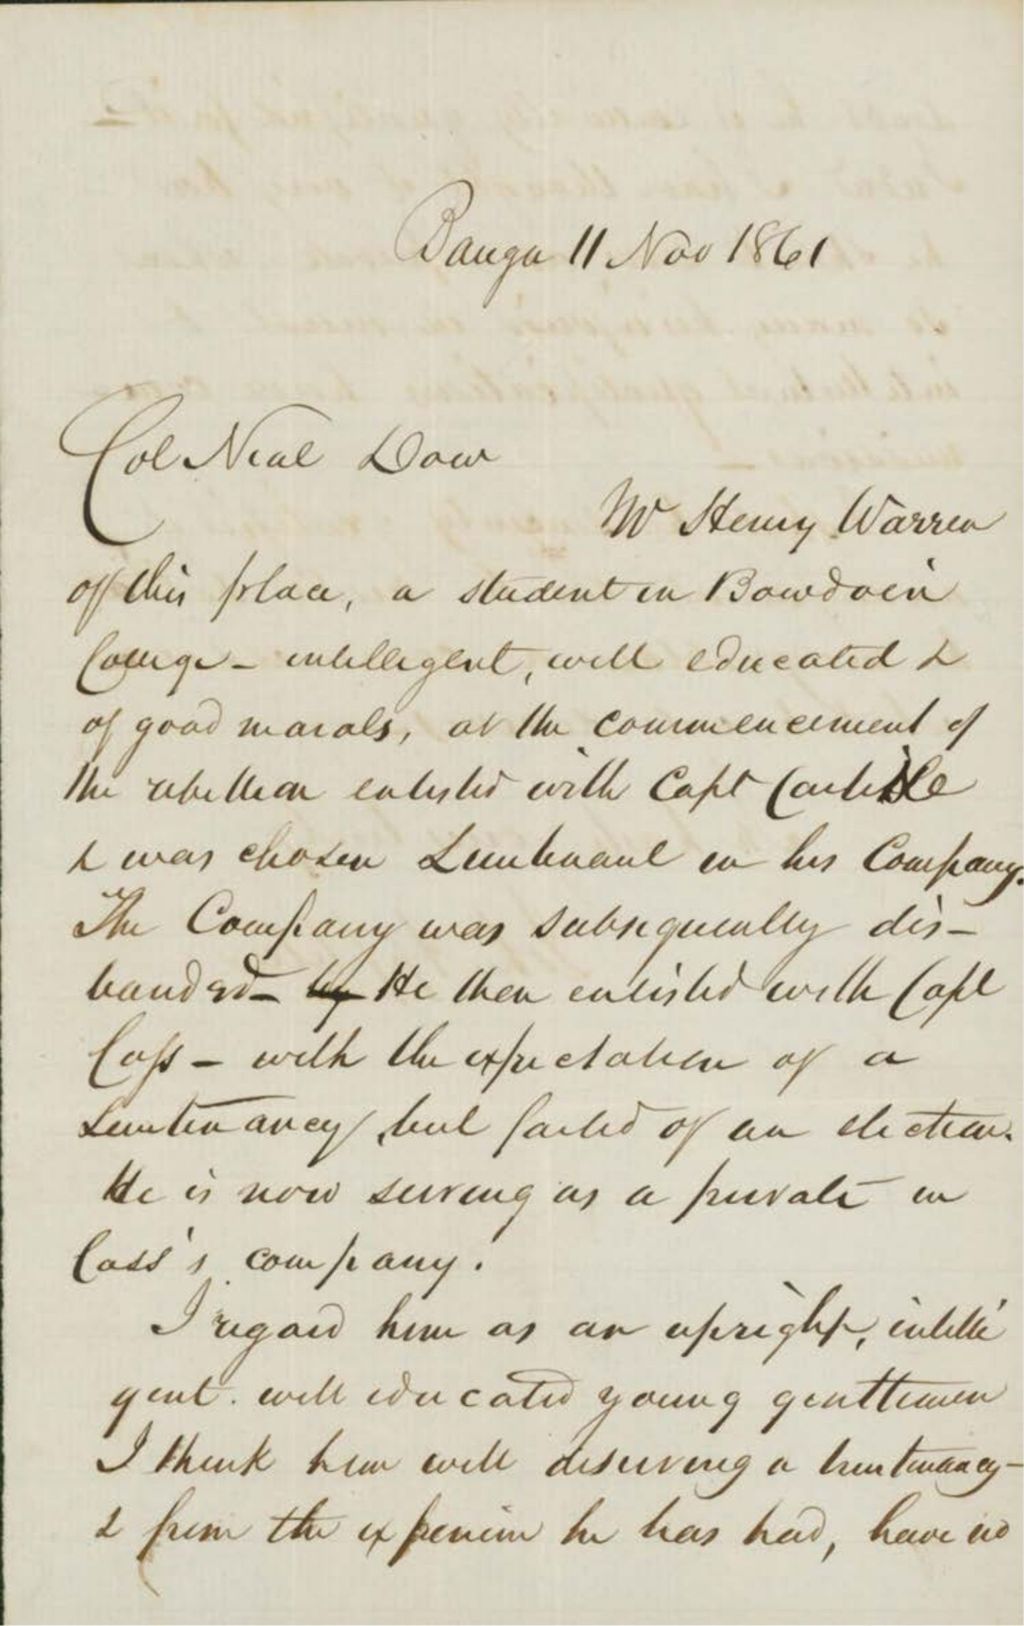 Bangor 11 Nov 1861
Col Neal Dow
Mr Henry Warren
of this place, a student in Bowdoin
College - intelligent, well educated &
of good morals, at the commencement of
the rebellion enlisted with Capt Carlisle
& was chosen Lieutenant in his Company.
The Company was subsequently dis-
banded - by He then enlisted with Capt
Cass - with the expectation of a
Lieutenancy, but failed of an election.
He is now serving as a private in
Cass's company.
I regard him as an upright, intelli
gent. well educated young gentleman
I think him well deserving a lieutenancy -
& from the experience he has had, have no